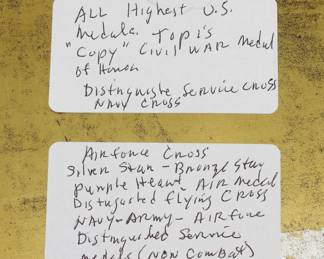 ALL Highest U.S.
Medals. Top is
"Copy" Civil WAR Medal
of Honor
Distinguiste Service Cross
NAVY CROSS
Airforce Cross
Silver Star - Bronze Star
purple Heart AIR Medal
Distugushed flying CROSS
NAVY-ARMY-AIRfore
Distinguished Service
medals (NON COMBAT)